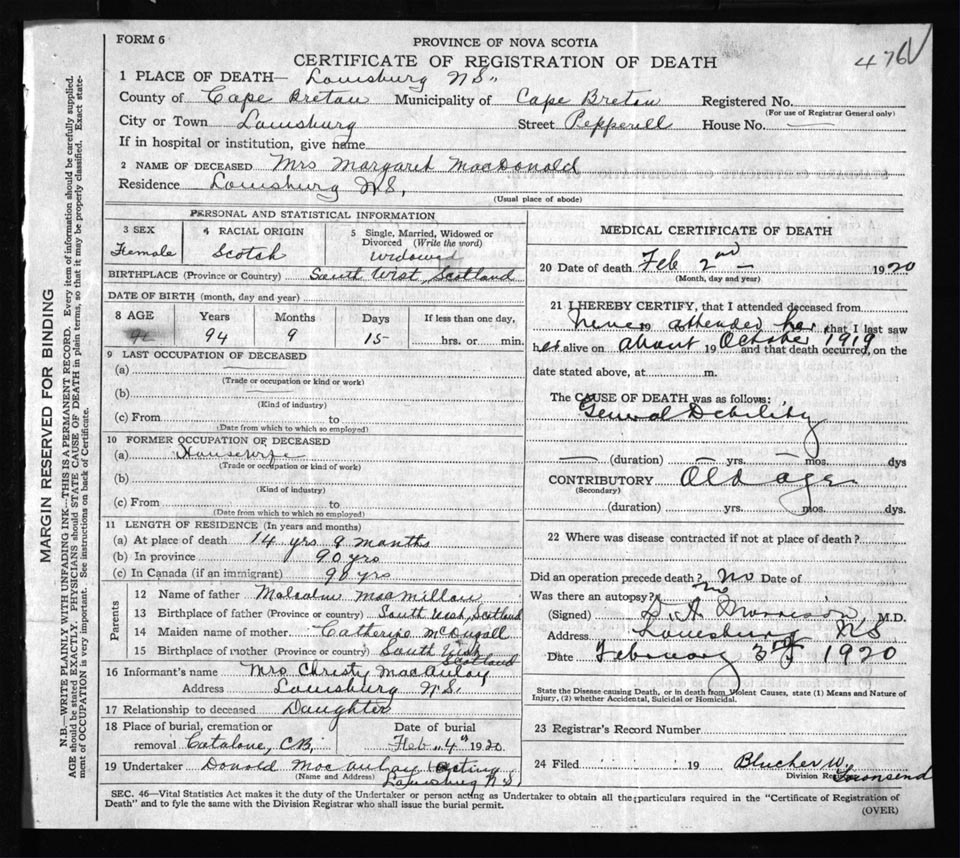 FORM 6
PROVINCE OF NOVA SCOTIA
476
CERTIFICATE OF REGISTRATION OF DEATH
1 PLACE OF DEATH— Louisburg N.S.
County of Cape Breton Municipality of Cape Breton Registered No.
(For use of Registrar General only)
City or Town Louisburg Street Pepperell House No. —
If in hospital or institution, give name
2 NAME OF DECEASED Mrs Margaret MacDonald
Residence Louisburg N.S.
(Usual place of abode)
PERSONAL AND STATISTICAL INFORMATION
3 SEX
Female
4 RACIAL ORIGIN
Scotch
5 Single, Married, Widowed or
Divorced (Write the word)
Widowed
BIRTHPLACE (Province or Country) South Uist, Scotland
DATE OF BIRTH (month, day and year)
8 AGE Years Months Days If less than one day,
94 9 15 hrs. or min.
9 LAST OCCUPATION OF DECEASED
(a)
(Trade or occupation or kind of work)
(b)
(Kind of industry)
(c) From to
(Date from which to which so employed)
10 FORMER OCCUPATION OF DECEASED
(a) Housewife
(Trade or occupation or kind of work)
(b)
(Kind of industry)
(c) From to
(Date from which to which so employed)
11 LENGTH OF RESIDENCE (In years and months)
(a) At place of death 14 yrs 9 months
(b) In province 90 yrs
(c) In Canada (if an immigrant) 90 yrs
Parents
12 Name of father Malcolm MacMillan
13 Birthplace of father (Province or country) South Uist, Scotland
14 Maiden name of mother Catherine McDugall
15 Birthplace of mother (Province or country) South Uist
Scotland
16 Informant's name Mrs Christy MacAulay
Address Louisburg N.S.
17 Relationship to deceased Daughter
18 Place of burial, cremation or
removal Catalone, C.B.
Date of burial
Feb 4th 1920.
19 Undertaker Donald MacAulay (acting
(Name and Address) Louisburg N.S.
MEDICAL CERTIFICATE OF DEATH
20 Date of death Feb 2nd — 1920
(Month, day and year)
21 I HEREBY CERTIFY, that I attended deceased from
Never attended her, that I last saw
her alive on about 19 October 1919 and that death occurred, on the
date stated above, at m.
The CAUSE OF DEATH was as follows:
General Debility
— (duration) — yrs. — mos. dys
CONTRIBUTORY Old age
(Secondary)
(duration) yrs. mos. dys.
22 Where was disease contracted if not at place of death?
Did an operation precede death? No Date of
Was there an autopsy? No
(Signed) D. A. Morrison, M.D.
Address Louisburg N S
Date February 3rd 1920
State the Disease causing Death, or in death from Violent Causes, state (1) Means and Nature of
Injury, (2) whether Accidental, Suicidal or Homicidal.
23 Registrar's Record Number
24 Filed 19 Blucher W.
Townsend
Division Registrar
SEC. 46—Vital Statistics Act makes it the duty of the Undertaker or person acting as Undertaker to obtain all the particulars required in the "Certificate of Registration of
Death" and to fyle the same with the Division Registrar who shall issue the burial permit.
(OVER)
MARGIN RESERVED FOR BINDING
N.B.—WRITE PLAINLY WITH UNFADING INK—THIS IS A PERMANENT RECORD. Every item of information should be carefully supplied.
AGE should be stated EXACTLY. PHYSICIANS should STATE CAUSE OF DEATH in plain terms, so that it may be properly classified. Exact state-
ment of OCCUPATION is very important. See instructions on back of Certificate.